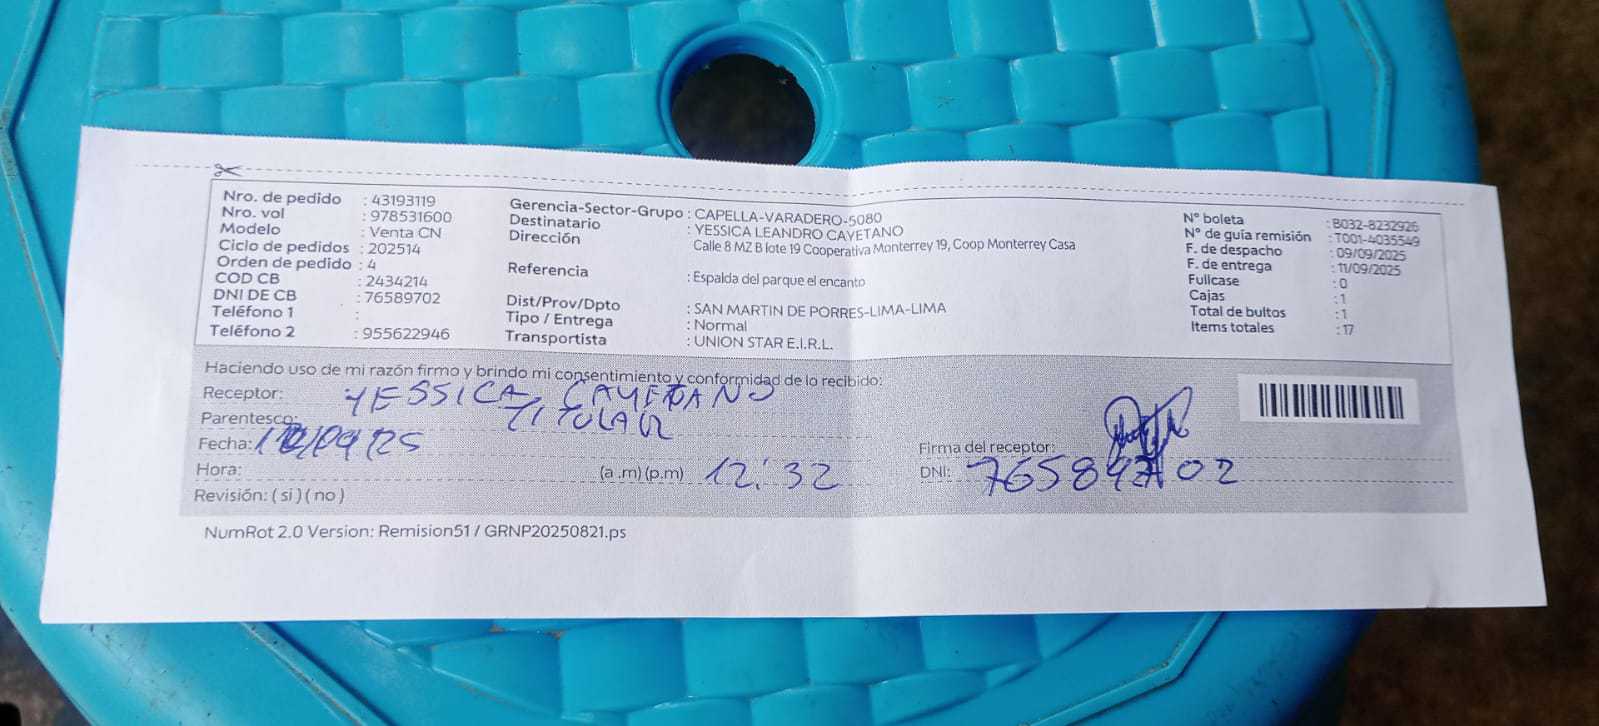 Nro. de pedido : 43193119
Nro. vol : 978531600
Modelo : Venta CN
Ciclo de pedidos : 202514
Orden de pedido : 4
COD CB : 2434214
DNI DE CB : 76589702
Teléfono 1 :
Teléfono 2 : 955622946
Gerencia-Sector-Grupo : CAPELLA-VARADERO-5080
Destinatario : YESSICA LEANDRO CAYETANO
Dirección Calle 8 MZ B lote 19 Cooperativa Monterrey 19, Coop Monterrey Casa
Referencia : Espalda del parque el encanto
Dist/Prov/Dpto : SAN MARTIN DE PORRES-LIMA-LIMA
Tipo / Entrega : Normal
Transportista : UNION STAR E.I.R.L.
N° boleta : B032-8232926
N° de guía remisión : T001-4035549
F. de despacho : 09/09/2025
F. de entrega : 11/09/2025
Fullcase : 0
Cajas : 1
Total de bultos : 1
Items totales : 17
Haciendo uso de mi razón firmo y brindo mi consentimiento y conformidad de lo recibido:
Receptor: YESSICA CAYETANO
Parentesco: TITULAR
Fecha: /09/25
Hora: (a .m) (p.m) 12:32
Revisión: ( si ) ( no )
Firma del receptor:
DNI:
NumRot 2.0 Version: Remision51 / GRNP20250821.ps